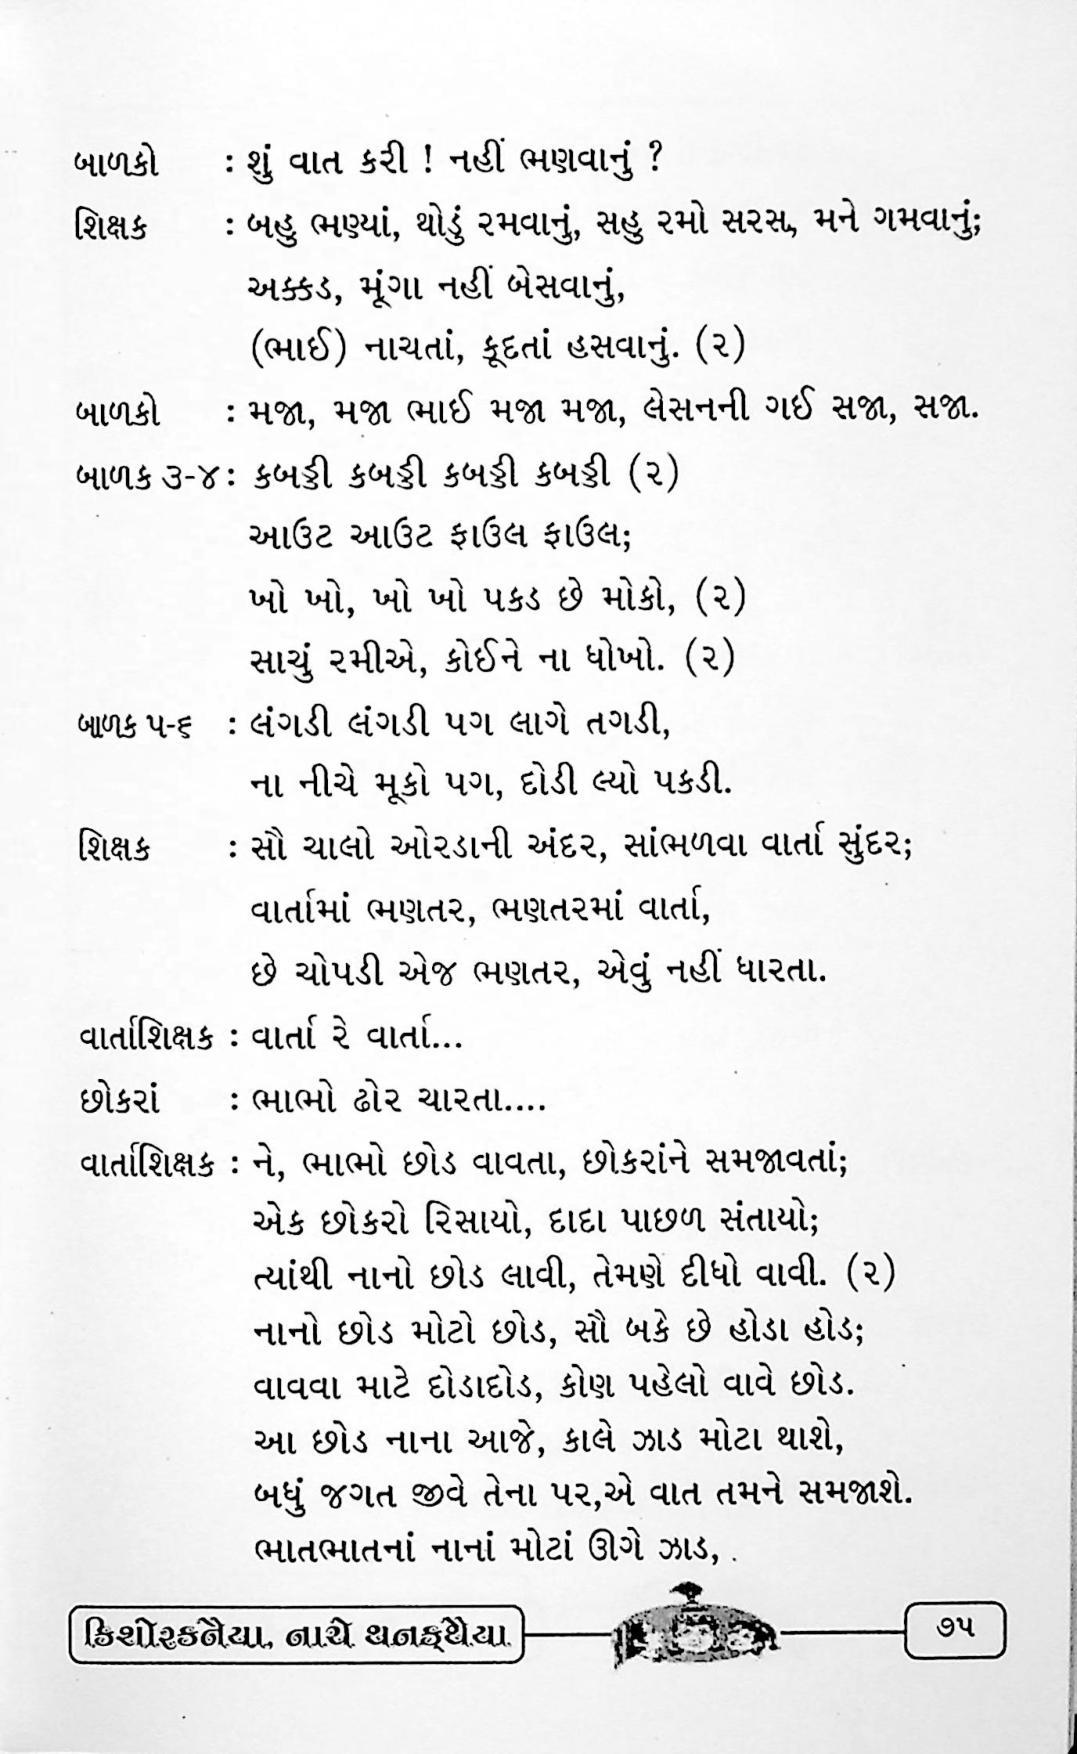 બાળકો : શું વાત કરી ! નહીં ભણવાનું ?
શિક્ષક : બહુ ભણ્યાં, થોડું રમવાનું, સહુ રમો સરસ, મને ગમવાનું;
અક્કડ, મૂંગા નહીં બેસવાનું,
(ભાઈ) નાચતાં, કૂદતાં હસવાનું. (૨)
બાળકો : મજા, મજા ભાઈ મજા મજા, લેસનની ગઈ સજા, સજા.
બાળક ૩-૪ : કબડ્ડી કબડ્ડી કબડ્ડી કબડ્ડી (૨)
આઉટ આઉટ ફાઉલ ફાઉલ;
ખો ખો, ખો ખો પકડ છે મોકો, (૨)
સાચું રમીએ, કોઈને ના ધોખો. (૨)
બાળક ૫-૬ : લંગડી લંગડી પગ લાગે તગડી,
ના નીચે મૂકો પગ, દોડી લ્યો પકડી.
શિક્ષક : સૌ ચાલો ઓરડાની અંદર, સાંભળવા વાર્તા સુંદર;
વાર્તામાં ભણતર, ભણતરમાં વાર્તા,
છે ચોપડી એજ ભણતર, એવું નહીં ધારતા.
વાર્તાશિક્ષક : વાર્તા રે વાર્તા...
છોકરાં : ભાભો ઢોર ચારતા....
વાર્તાશિક્ષક : ને, ભાભો છોડ વાવતા, છોકરાંને સમજાવતાં;
એક છોકરો રિસાયો, દાદા પાછળ સંતાયો;
ત્યાંથી નાનો છોડ લાવી, તેમણે દીધો વાવી. (૨)
નાનો છોડ મોટો છોડ, સૌ બકે છે હોડા હોડ;
વાવવા માટે દોડાદોડ, કોણ પહેલો વાવે છોડ.
આ છોડ નાના આજે, કાલે ઝાડ મોટા થાશે,
બધું જગત જીવે તેના પર,એ વાત તમને સમજાશે.
ભાતભાતનાં નાનાં મોટાં ઊગે ઝાડ,
કિશોરકનૈયા, નાચે થનક્થૈયા
૭૫